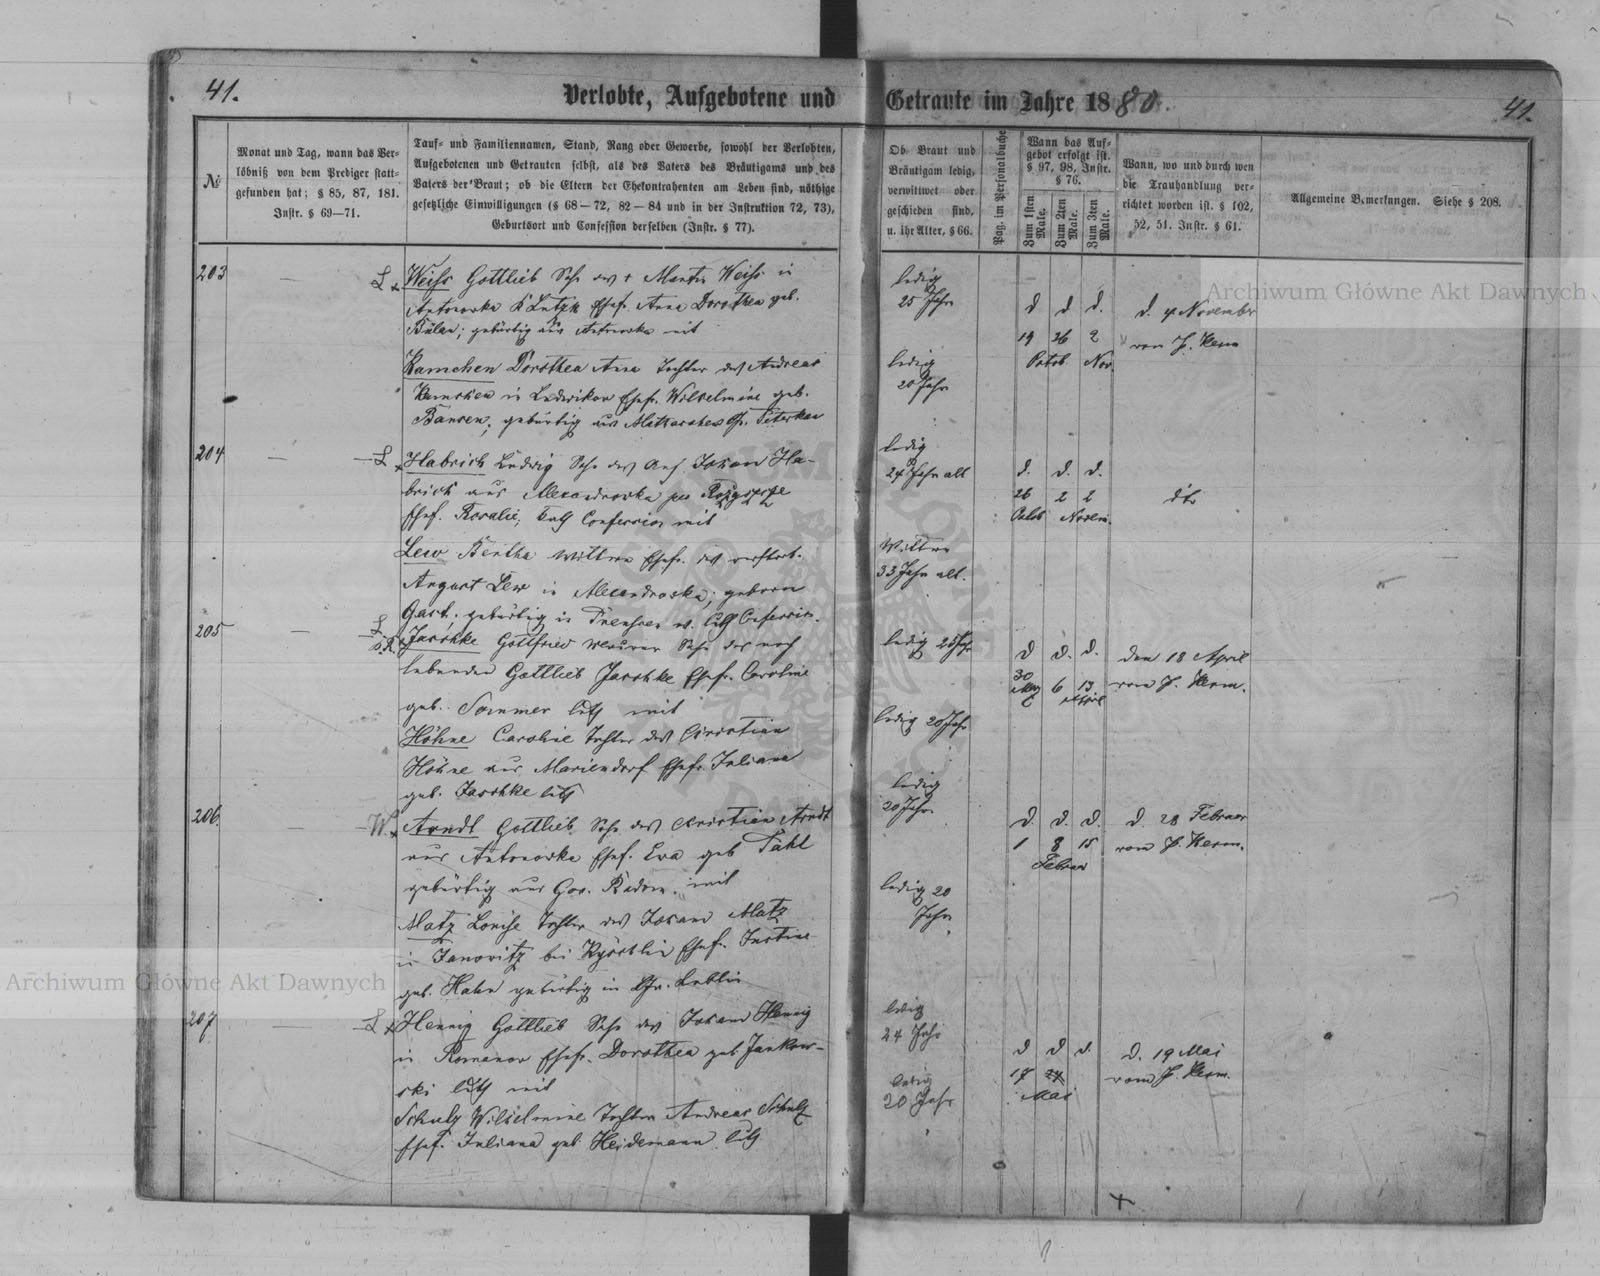 41.
Verlobte, Aufgebotene und Getraute im Jahre 1880.
41.
№
Monat und Tag, wann das Ver-
löbniß von dem Prediger statt-
gefunden hat; § 85, 87, 181.
Instr. § 69—71.
Tauf- und Familiennamen, Stand, Rang oder Gewerbe, sowohl der Verlobten,
Aufgebotenen und Getrauten selbst, als des Vaters des Bräutigams und des
Vaters der Braut; ob die Eltern der Ehekontrahenten am Leben sind, nöthige
gesetzliche Einwilligungen (§ 68—72, 82—84 und in der Instruktion 72, 73),
Geburtsort und Confession derselben (Instr. § 77).
Ob Braut und
Bräutigam ledig,
verwittwet oder
geschieden sind,
u. ihr Alter, § 66.
Pag. im Personalbuche
Wann das Auf-
gebot erfolgt ist.
§ 97, 98, Instr.
§ 76.
Zum 1sten Male.
Zum 2ten Male.
Zum 3ten Male.
Wann, wo und durch wen
die Trauhandlung ver-
richtet worden ist. § 102,
52, 51. Instr. § 61.
Allgemeine Bemerkungen. Siehe § 208.
203
L
Weiss Gottlieb Sohn des + Martin Weiss in
Antonowka Ehef. Anna Dorothea geb.
gebürtig aus Antonowka mit
Ramchen Dorothea Anna Tochter des Andreas
in Ludwikow Ehef. Wilhelmine geb.
gebürtig aus
ledig
25 Jahr
ledig
20 Jahr
d d d.
19 26 2
Octob Nov.
d. 4 November
von P. Herm
204
L
Habrich Ludwig Sohn des Johann Ha-
brich aus Alexandrowka
Ehef. Rosalie, luth Confession mit
Lew Bertha Wittwe Ehefr. des verstorb.
August Lew in Alexandrowka, geborne
Gast, gebürtig in Preussen luth Confession.
ledig
24 Jahr alt
Wittwe
33 Jahr alt.
d. d. d.
26 2 2
Octob Novem.
dto
205
L
Jaschke Gottfried Sohn des noch
lebenden Gottlieb Jaschke Ehefr. Caroline
geb. Sommer luth mit
Höhne Caroline Tochter des Christian
Höhne aus Mariendorf Ehefr. Juliana
geb. Jaschke luth
ledig 25 Jahr
ledig 20 Jahr
d d. d.
30 6 13
April
den 18 April
vom P. Herm.
206.
W.
Arndt Gottlieb Sohn des Christian Arndt
aus Antonowka Ehef. Eva geb Fahl
gebürtig aus Gov. Radom. mit
Matz Louise Tochter des Johann Matz
in Janovitz bei Ehef. Justine
geb. Hahn gebürtig in Gv. Lublin
ledig
20 Jahr.
ledig 20
Jahr
d. d. d.
1 8 15
Februar
d. 28 Februar
vom P. Herm.
207
L
Hennig Gottlieb Sohn des Johann Hennig
in Romanow Ehefr. Dorothea geb Jankow-
ski luth mit
Schulz Wilhelmine Tochter Andreas Schulz
Ehef. Juliana geb Heidemann luth
ledig
24 Jahr
ledig
20 Jahr
d d d.
17 24
Mai
d. 19 Mai
vom P. Herm.
Archiwum Główne Akt Dawnych
Archiwum Główne Akt Dawnych